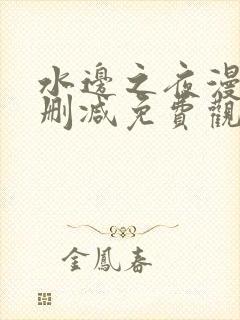 水邊之夜漫
刪減免費觀
金鳳春